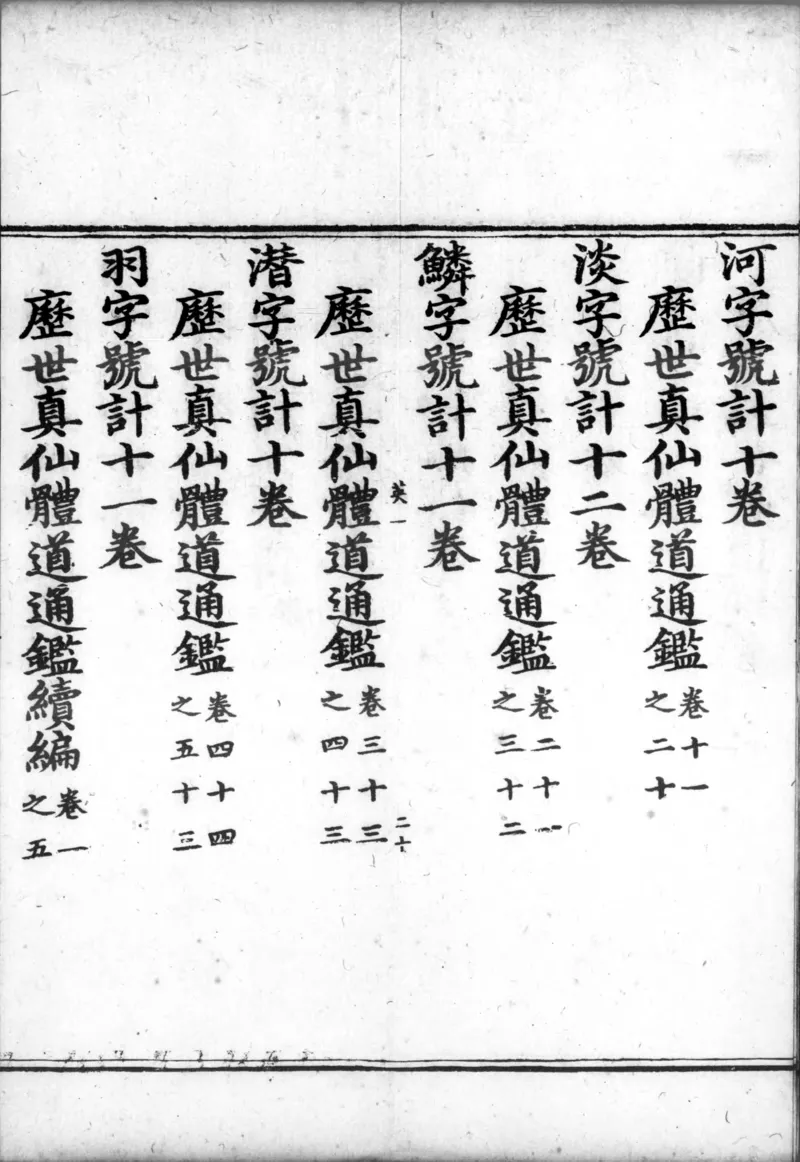 河字號計十卷
歷世真仙體道通鑑卷十一之二十
淡字號計十二卷
歷世真仙體道通鑑卷二十一之三十二
鱗字號計十一卷
歷世真仙體道通鑑卷三十三之四十三
英一
二十
潛字號計十卷
歷世真仙體道通鑑卷四十四之五十三
羽字號計十一卷
歷世真仙體道通鑑續編卷一之五